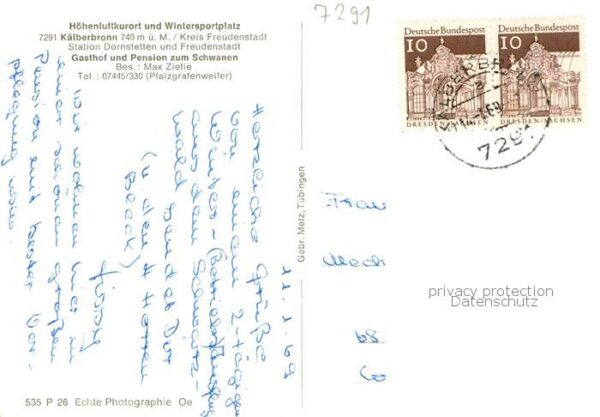 Höhenluftkurort und Wintersportplatz
7291 Kälberbronn 740 m ü. M. / Kreis Freudenstadt
Station Dornstetten und Freudenstadt
Gasthof und Pension zum Schwanen
Bes.: Max Ziefle
Tel.: 07445/330 (Pfalzgrafenweiler)
7291
Deutsche Bundespost
10
DRESDEN/SACHSEN
Deutsche Bundespost
10
DRESDEN/SACHSEN
7291
11.1.69
Herzliche Grüße
von einem 2-tägigen
Winter-
aus dem Schwarz-
wald sendet Dir
(u. den Herren
Wir wohnen hier in
einer schönen großen
Pension mit bester Ver-
pflegung
Gebr. Metz, Tübingen
Frau
68
privacy protection
Datenschutz
535 P 26 Echte Photographie Oe